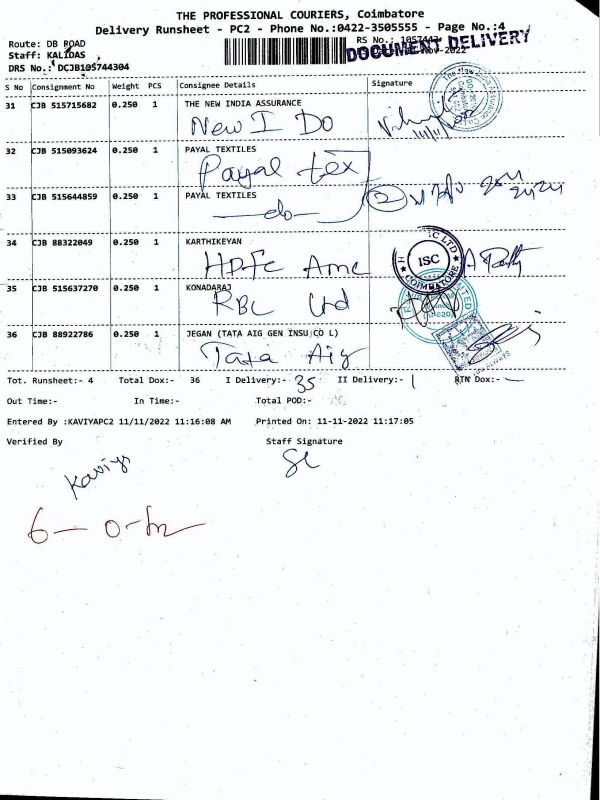 THE PROFESSIONAL COURIERS, Coimbatore
Delivery Runsheet - PC2 - Phone No.:0422-3505555 - Page No.:4
Route: DB ROAD
RS No.:
DOCUMENT DELIVERY
Staff: KALIDAS
Nov-2022
DRS No.: DCJB105744304
S No Consignment No Weight PCS Consignee Details Signature
31 CJB 515715682 0.250 1 THE NEW INDIA ASSURANCE
New I Do
32 CJB 515093624 0.250 1 PAYAL TEXTILES
Payal tex
33 CJB 515644859 0.250 1 PAYAL TEXTILES
do
2
34 CJB 88322049 0.250 1 KARTHIKEYAN
HDFC Amc
ISC
COIMBATORE
35 CJB 515637270 0.250 1 KONADARAJ
RBL Ltd
36 CJB 88922786 0.250 1 JEGAN (TATA AIG GEN INSU CO L)
Tata Aig
Tot. Runsheet:- 4 Total Dox:- 36 I Delivery:- 35 II Delivery:- 1 RTN Dox:-
Out Time:- In Time:- Total POD:-
Entered By :KAVIYAPC2 11/11/2022 11:16:08 AM Printed On: 11-11-2022 11:17:05
Verified By Staff Signature
Kaviya